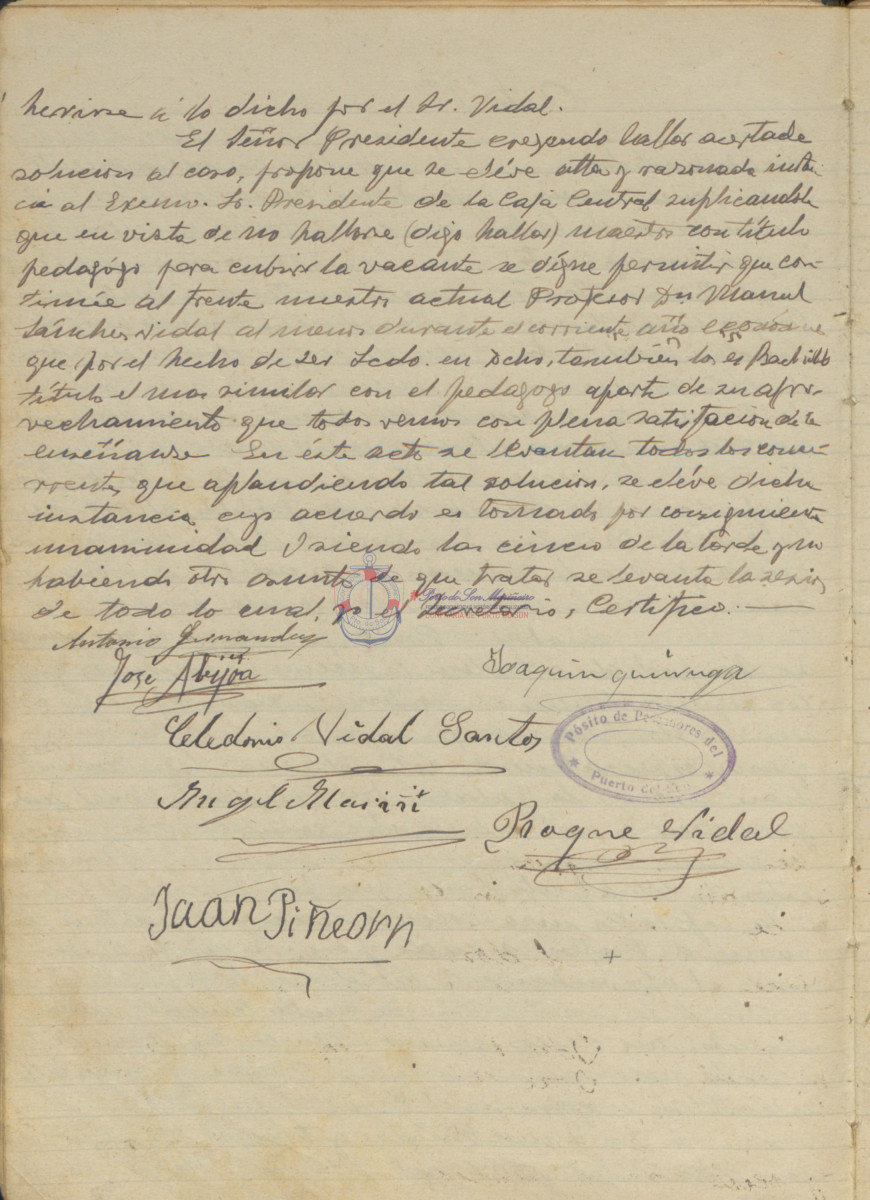 herirse á lo dicho por el Sr. Vidal.
El Señor Presidente creyendo hallar acertada
solucion al caso, propone que se eléve atta y razonada insta
cia al Excmo. Sr. Presidente de la Caja Central suplicandole
que en vista de no hallarse (digo hallar) maestro con título
pedagógo para cubrir la vacante se dígne permitir que con-
tinúe al frente nuestro actual Profesor Don Manuel
Sánchez Vidal al menos durante el corriente año
que por el hecho de ser Lcdo. en Dcho, también lo es Bachiller
título el mas similar con el pedagogo aparte de su apro-
vechamiento que todos vemos con plena satisfacion de la
enseñanse En éste acto se levantan todos los concu-
rrentes que aplaudiendo tal solucion, se eléve dicha
instancia cuyo acuerdo es tomado por consiguiente
unanimidad Y siendo las cinco de la tarde y no
habiendo otro asunto de que tratar se levanta la sesion
de todo lo cual, yo el Secretario, Certifico.
Antonio Fernandez
José Abijóa
Joaquin quiruga
Celedonio Vidal Santos
Pósito de Pescadores del
Puerto del Son
Angel
Roque Vidal
Juan Piñeorn